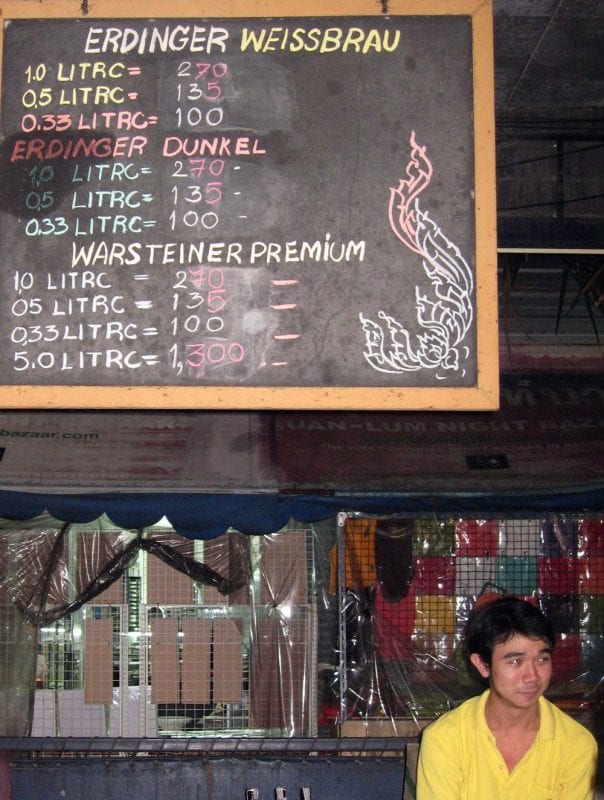 ERDINGER WEISSBRAU
1.0 LITRC= 270
0,5 LITRC= 135
0.33 LITRC= 100
ERDINGER DUNKEL
1,0 LITRC= 270 -
0,5 LITRC= 135 -
0.33 LITRC= 100 -
WARSTEINER PREMIUM
1,0 LITRC = 270 —
05 LITRC = 135 —
0,33 LITRC= 100 —
5.0 LITRC= 1,300 —
bazaar.com
SUAN-LUM NIGHT BAZA